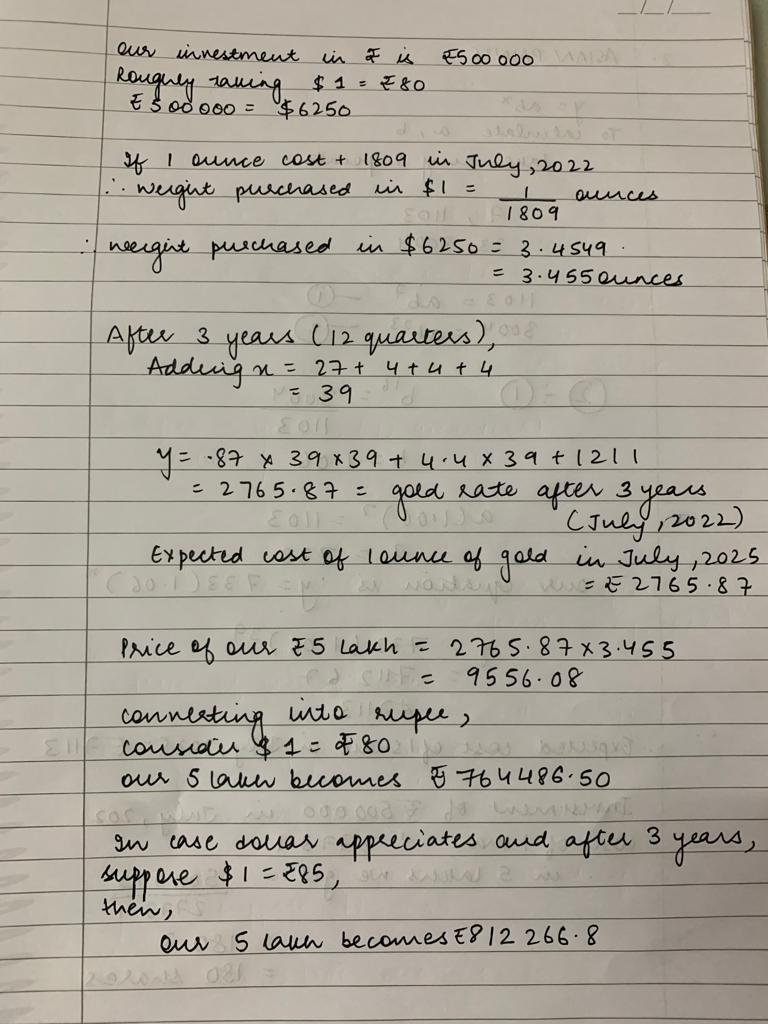 Our investment in ₹ is ₹500 000
Roughly taking $ 1 = ₹80
₹500 000 = $6250
If 1 ounce cost + 1809 in July, 2022
∴ weight purchased in $1 = 1/1809 ounces
∴ weight purchased in $6250 = 3.4549.
= 3.455 ounces
After 3 years (12 quarters),
Adding x = 27 + 4 + 4 + 4
= 39
y = .87 x 39 x 39 + 4.4 x 39 + 1211
= 2765.87 = gold rate after 3 years
(July, 2022)
Expected cost of 1 ounce of gold in July, 2025
= ₹ 2765.87
Price of our ₹5 lakh = 2765.87 x 3.455
= 9556.08
converting into rupee,
consider $ 1 = ₹80
our 5 lakh becomes ₹ 764486.50
In case dollar appreciates and after 3 years,
suppose $ 1 = ₹85,
then,
our 5 lakh becomes ₹812 266.8